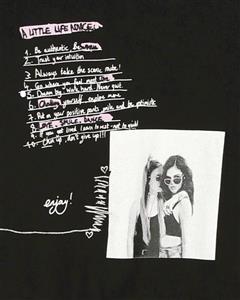 A LITTLE LIFE ADVICE:
1. Be authentic. Be
2. Trust your intuition
3. Always take the scenic route!
4. Go where you feel most
5. Dream big. Work hard. Never quit.
6. yourself, explore more
7. Put on your positive pants, smile and be optimistic
8. LOVE. SMILE. DANCE
9. If you get tired learn to rest - not to quit!
10. Chin up, don't give up!!!
enjoy!